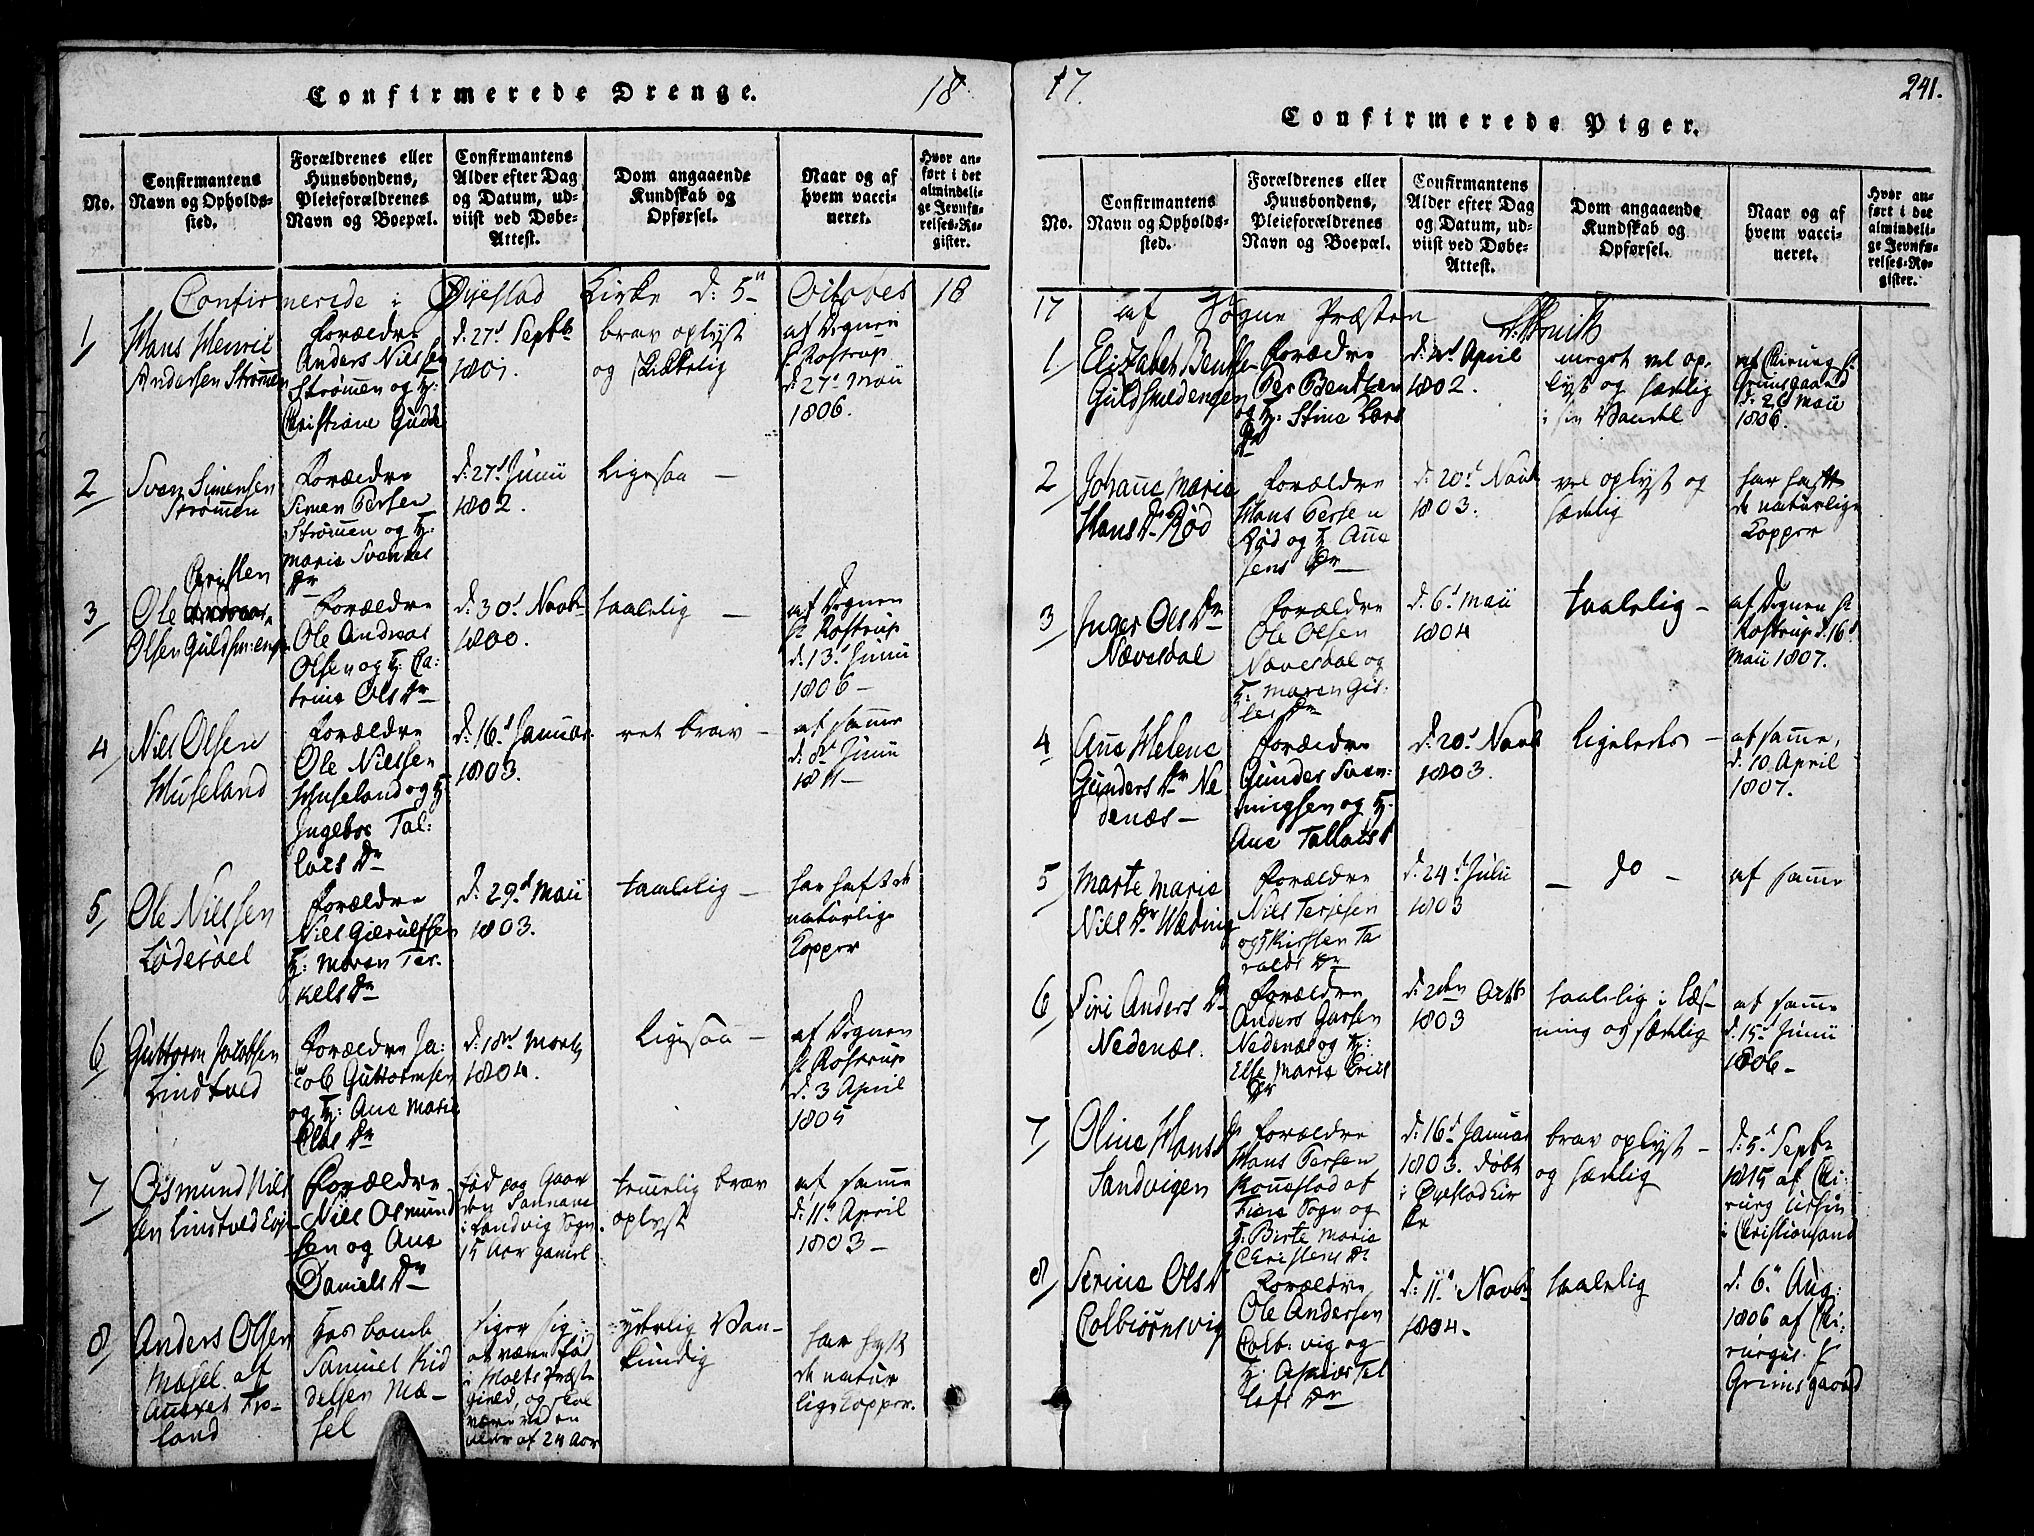 Confirmerede Drenge.
18
No.
Confirmantens
Navn og Opholds-
sted.
Forældrenes eller
Huusbondens,
Pleieforældrenes
Navn og Boepæl.
Confirmantens
Alder efter Dag
og Datum, ud-
viist ved Døbe-
Attest.
Dom angaaende
Kundskab og
Opførsel.
Naar og af
hvem vacci-
neret.
Hvor an-
ført i det
almindeli-
ge Jevnfø-
relses-Re-
gister.
Confirmerede i Øiestad Kirke d: 5n October 18
1
Hans Henric
Andersen Strømen
Forældre
Anders Nilssen
Strømen og H:
Christiane Gude
d: 27d Septbr
1801.
brav oplyst
og skikkelig
af Degnen
Hr Rostrup
d: 27d Maii
1806.
2
Sven Simensen
Strømen
Forældre
Simen Persen
Strømen og H:
Marie Svends
Dr
d: 27d Junii
1802.
Ligesaa —
3
Christen
Ole
Olsen
Forældre
Ole Andreas
Olsen og H: Ca:
trine Ols Dr
d: 30d Novbr
1800.
taalelig —
af Degnen
Hr Rostrup
d: 13d Junii
1806 —
4
Niels Olsen
Huseland
Forældre
Ole Nielsen
Huseland og H:
Ingebor Tal:
lacs Dr
d: 16d Januar.
1803.
ret brav —
af same
d: 8d Junii
1811 —
5
Ole Nielssen
Lødesøel
Forældre
Niels Gierulfsen
H: Maren Ter-
kels Dr
d: 29d Maii
1803.
taalelig —
har haft de
naturlige
Kopper
6
Guttorm Jacobsen
Lindtved
Forældre Ja:
cob Guttormsen
og H: Ane Marie
Ols Dr
d: 18d Marty
1804.
Ligesaa —
af Degnen
Hr Rostrup
d. 3 April
1805
7
Osmund Nils
sen Lindtved
Forældre
Niels Osmund
sen og Ane
Daniels Dr
fød paa Gaar
den
i Landvig Sogn.
15 Aar gamel
temelig brav
oplyst
af same
d: 11d April
1803 —
8
Anders Olsen
Mæsel af
Anexet Fro-
land
Hosbonde
Samuel Kid
delsen Mæ-
sel
siger sig
at være fød
i Holts Præste
gield, og skal
være ved en
alder af 24 Aar
Van-
kundig
har haft
de natur
lige Kopper.
17.
241.
Confirmerede Piger.
No.
Confirmantens
Navn og Opholds-
sted.
Forældrenes eller
Huusbondens,
Pleieforældrenes
Navn og Boepæl.
Confirmantens
Alder efter Dag
og Datum, ud-
viist ved Døbe-
Attest.
Dom angaaende
Kundskab og
Opførsel.
Naar og af
hvem vacci-
neret.
Hvor an-
ført i det
almindeli-
ge Jevnfø-
relses-Re-
gister.
17 af Sogne Præsten
1
Elizabet Bents-
Guldsmedengen
Forældre
Per Bentsen
og H: Stine Lars
Dr
April
1802.
meget vel op-
lyst og sædelig
i sin Vandel
af Chirurg Hr
Grimsgaard
d. 28 Maii
1806.
2
Johanne Marie
Hans Dr Rød
Forældre
Hans Persen
Rød og H Ane
Jens Dr —
d: 20d Novb
1803.
vel oplyst og
sædelig
har haft
de naturlige
Kopper
3
Inger Ols Dr
Næversdal
Forældre
Ole Olsen
Næversdal og
H: Maren Gis-
les Dr
d: 6d Maii
1804
taalelig —
af Degnen Hr
Rostrup d. 16d
Maii 1807.
4
Ane Helene
Gunders Dr Ne
denæs —
Forældre
Gunder Sven:
ningsen og H:
Ane Tallacs
d: 20d Novb
1803.
ligeledes —
af same,
d. 10 April
1807.
5
Marte Marie
Niels Dr
Forældre
Niels Terjesen
og H Kirsten Ta
ralds Dr
d: 24d Julii
1803
— do —
af same
6
Siri Anders Dr
Nedenæs.
Forældre
Anders Garsen
Nedenæs og H:
Else Marie Erics
Dr
1803
taalelig i Læs-
ning og sædelig
af same
d: 15d Junii
1806 —
7
Oline Hans
Sandvigen
Forældre
Hans Persen
Ronestad af
Fiere Sogn og
H: Birte Marie
Christens Dr
d: 16d Januar
1803. døbt
i Øiestad Kir
ke
brav oplyst —
og sædelig
d: 5d Septbr
1815 af Chi-
rurg
i Christiansand
8
Serine Ols Dr
Colbiørnsvig
Forældre
Ole Andersen
Colb: vig og
H: Asnes Tal
lefs Dr
d: 11d Novbr
1804.
taalelig
d: 6d Aug:
1806 af Chi:
rurgus Hr
Grimsgaard